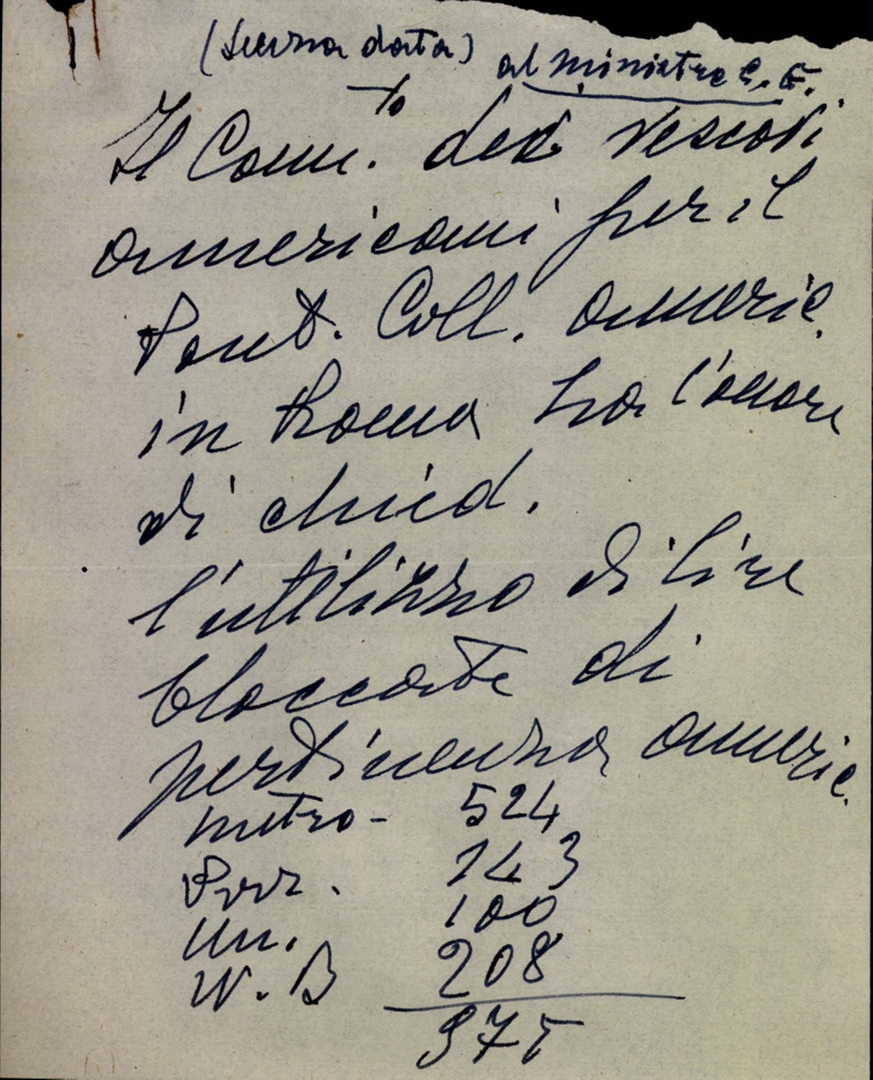 (senza data) al ministro C. E.
Il Com.to dei Vescovi
americani per il
Pont. Coll. americ.
in Roma ha l'onore
di chied.
l'utilizzo di lire
bloccate di
pertinenza americ.
metro - 524
143
Un. 100
W. B 208
975